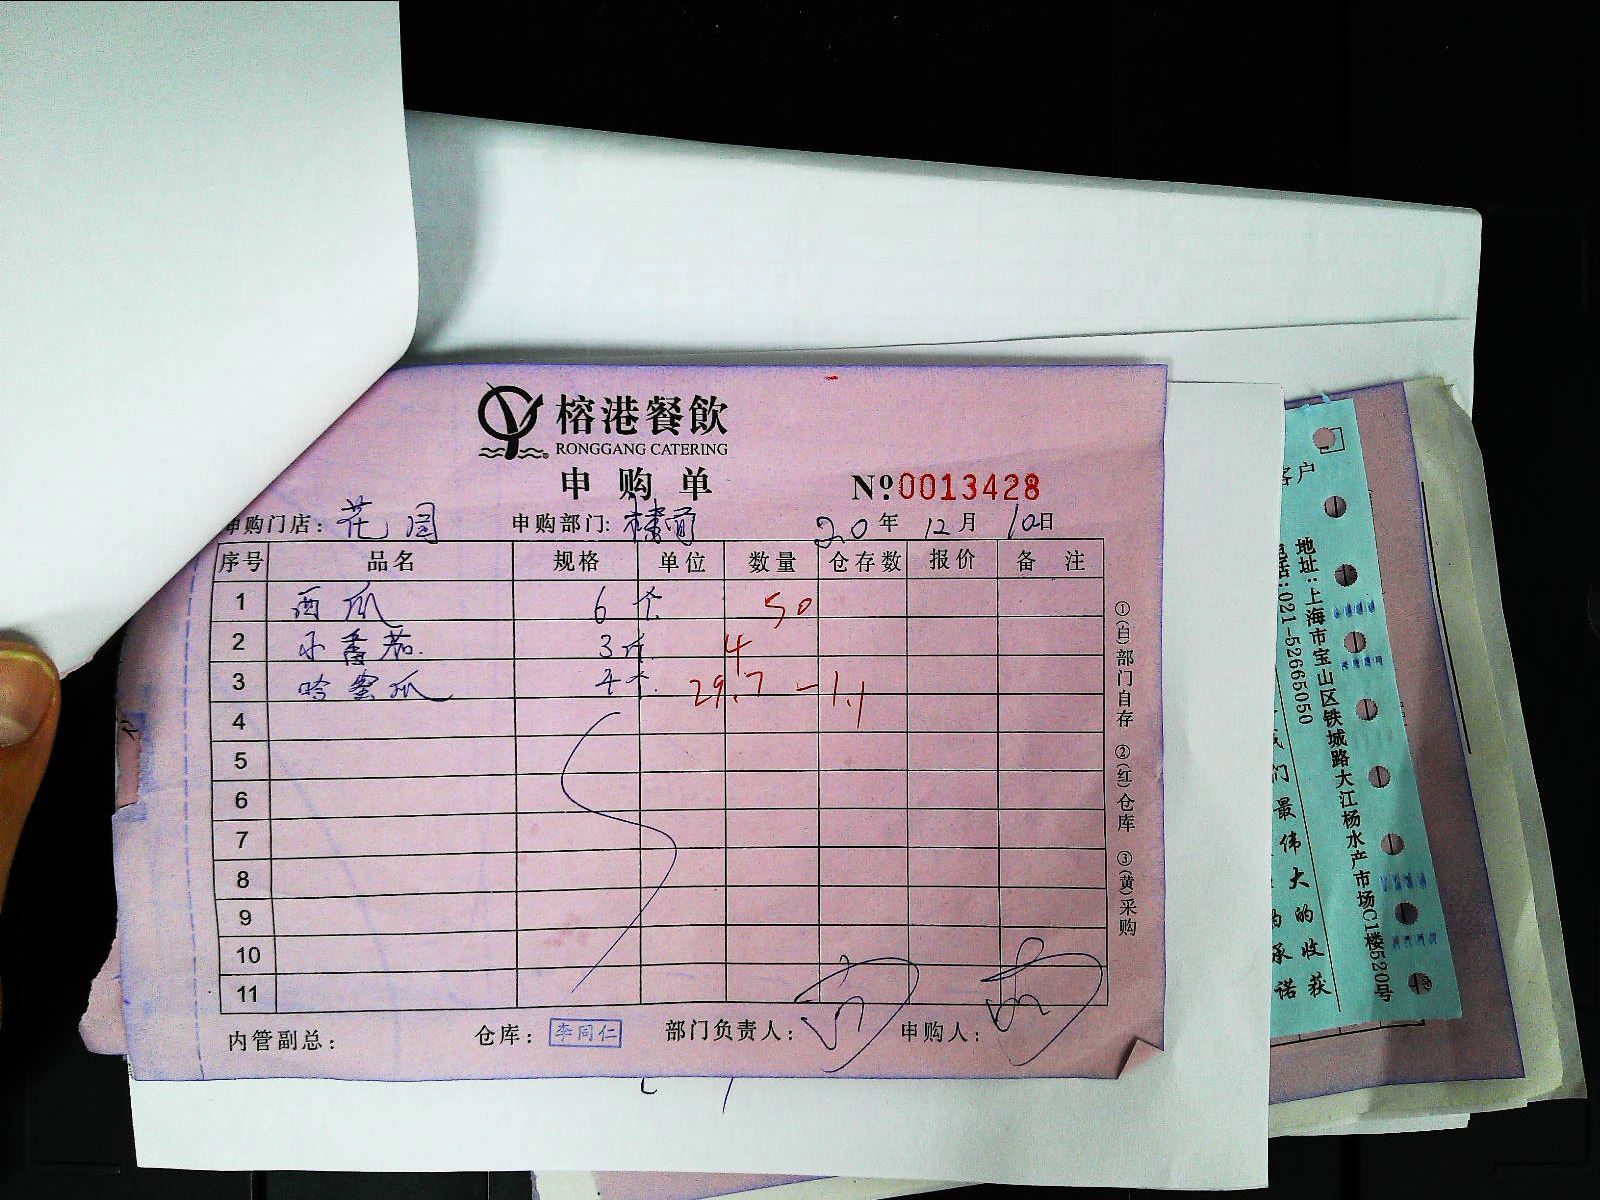 榕港餐飲
RONGGANG CATERING
申购单
№0013428
申购门店：花园 申购部门: 楼面 20年12月10日
序号 品名 规格 单位 数量 仓存数 报价 备注
1 西瓜 6个 50
2 小番茄 3斤 4
3 哈蜜瓜 4个 29.7 -1.1
4
5
6
7
8
9
10
11
内管副总： 仓库：李同仁 部门负责人： 申购人：
①(白)部门自存 ②(红)仓库 ③(黄)采购
客户
地址:上海市宝山区铁城路大江杨水产市场C1楼520号
电话:021-52665050
们最伟大的收获
承诺